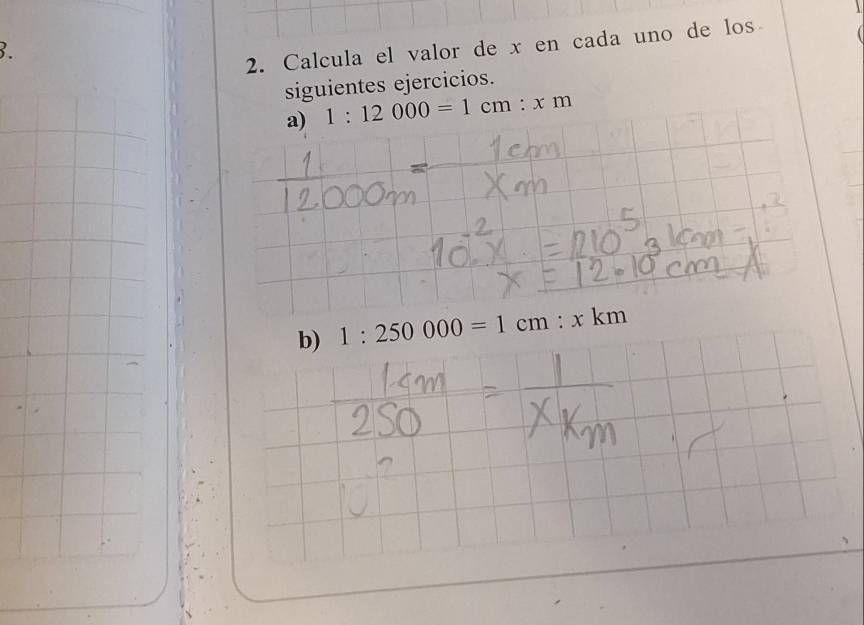 3.
2. Calcula el valor de x en cada uno de los
siguientes ejercicios.
a) 1 : 12 000 = 1 cm : x m
1 = 1 cm
12000m x m
10⁻² x = 12 10⁵
x = 12.10³ cm
b) 1 : 250 000 = 1 cm : x km
1 cm = 1
250 x Km